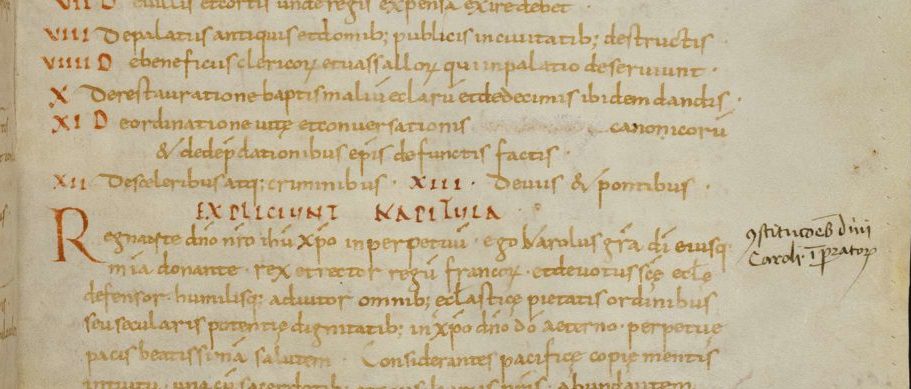 VII De cuiuis et cortis unde regis expensa exire debet ·
VIII De palatiis antiquis et domib; publicis in ciuitatib; destructis ·
VIIII De beneficiis clericoꝝ et uassalloꝝ qui in palatio deseruiunt ·
X De restauratione baptismaliū eclārū et de decimis ibidem dandis ·
XI De ordinatione uitę et conuersationis canonicorū
& de dep̄dationibus ep̄is defunctis factis ·
XII De sceleribus atq; criminibus · XIII · De uiis & pontibus ·
EXPLICIUNT KAPITULA
Regnante dn̄o nr̄o ih̄u xp̄o in perpetuū · ego karolus gr̄a dī eiusq;
mīa donante · rex et rector regū francoꝝ · et deuotus scę̄ eclę̄
defensor · humilisq; adiutor omnib; eclāsticę pietatis ordinibus
seu secularis potentię dignitatib; in xp̄o dn̄o dō aeterno · perpetue
pacis beatissimā salutem · Considerantes pacificę copię mentis
intuitu · una cū sacerdotib; abundantem
ꝯstitutōēs dīui
Caroli īpr̄atoꝝ